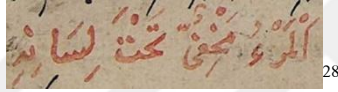 اَلْمَرْءُ مَخْفِيٌّ تَحْتَ لِسَانِهِ 28